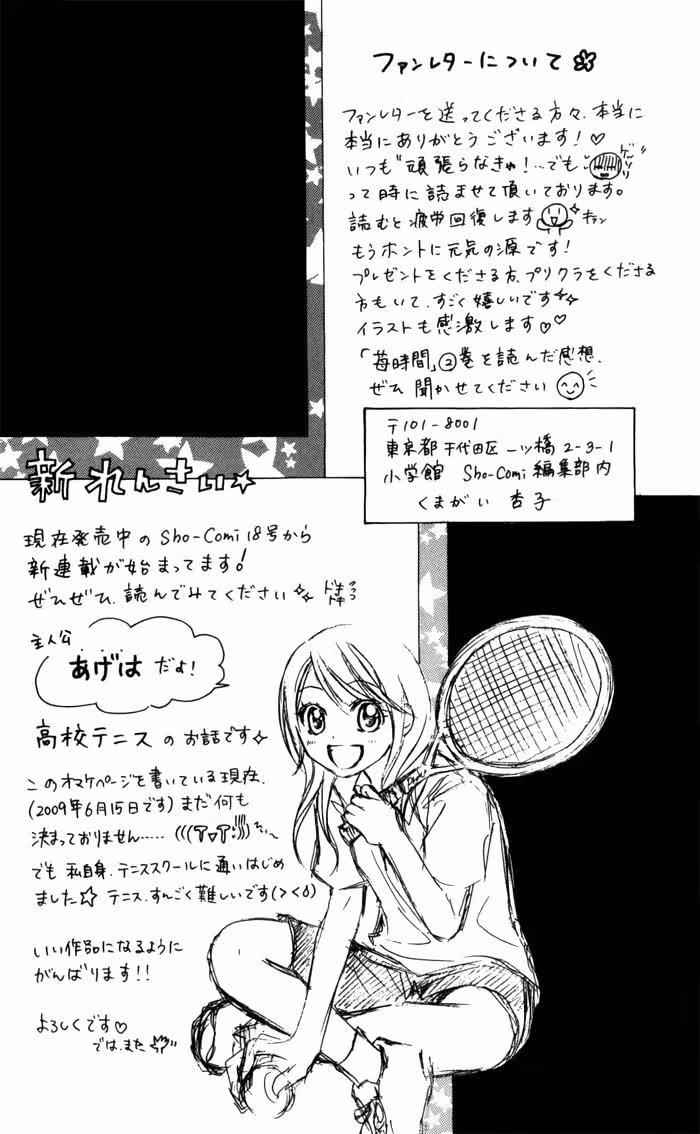 ファンレターについて
ファンレターを送ってくださる方々、本当に
本当にありがとうございます！♡
いつも"頑張らなきゃ！…でも
ゲッソリ
って時に読ませて頂いております。
読むと疲労回復します
キラン
もうホントに元気の源です！
プレゼントをくださる方、プリクラをくださる
方もいて、すごく嬉しいです
イラストも感激します♡♡
「苺時間」②巻を読んだ感想、
ぜひ聞かせてください
〒101-8001
東京都千代田区一ツ橋2-3-1
小学館 Sho-Comi編集部内
くまがい杏子
新れんさい☆
現在発売中のSho-Comi 18号から
新連載が始まってます！
ぜひぜひ、読んでみてください
ドキドキ
主人公
あげはだよ！
高校テニスのお話です
このオマケページを書いている現在、
(2009年6月15日です)まだ何も
決まっておりません……
でも私自身、テニススクールに通いはじめ
ました☆テニス、すんごく難しいです(><)
いい作品になるように
がんばります！！
よろしくです♡
では、また